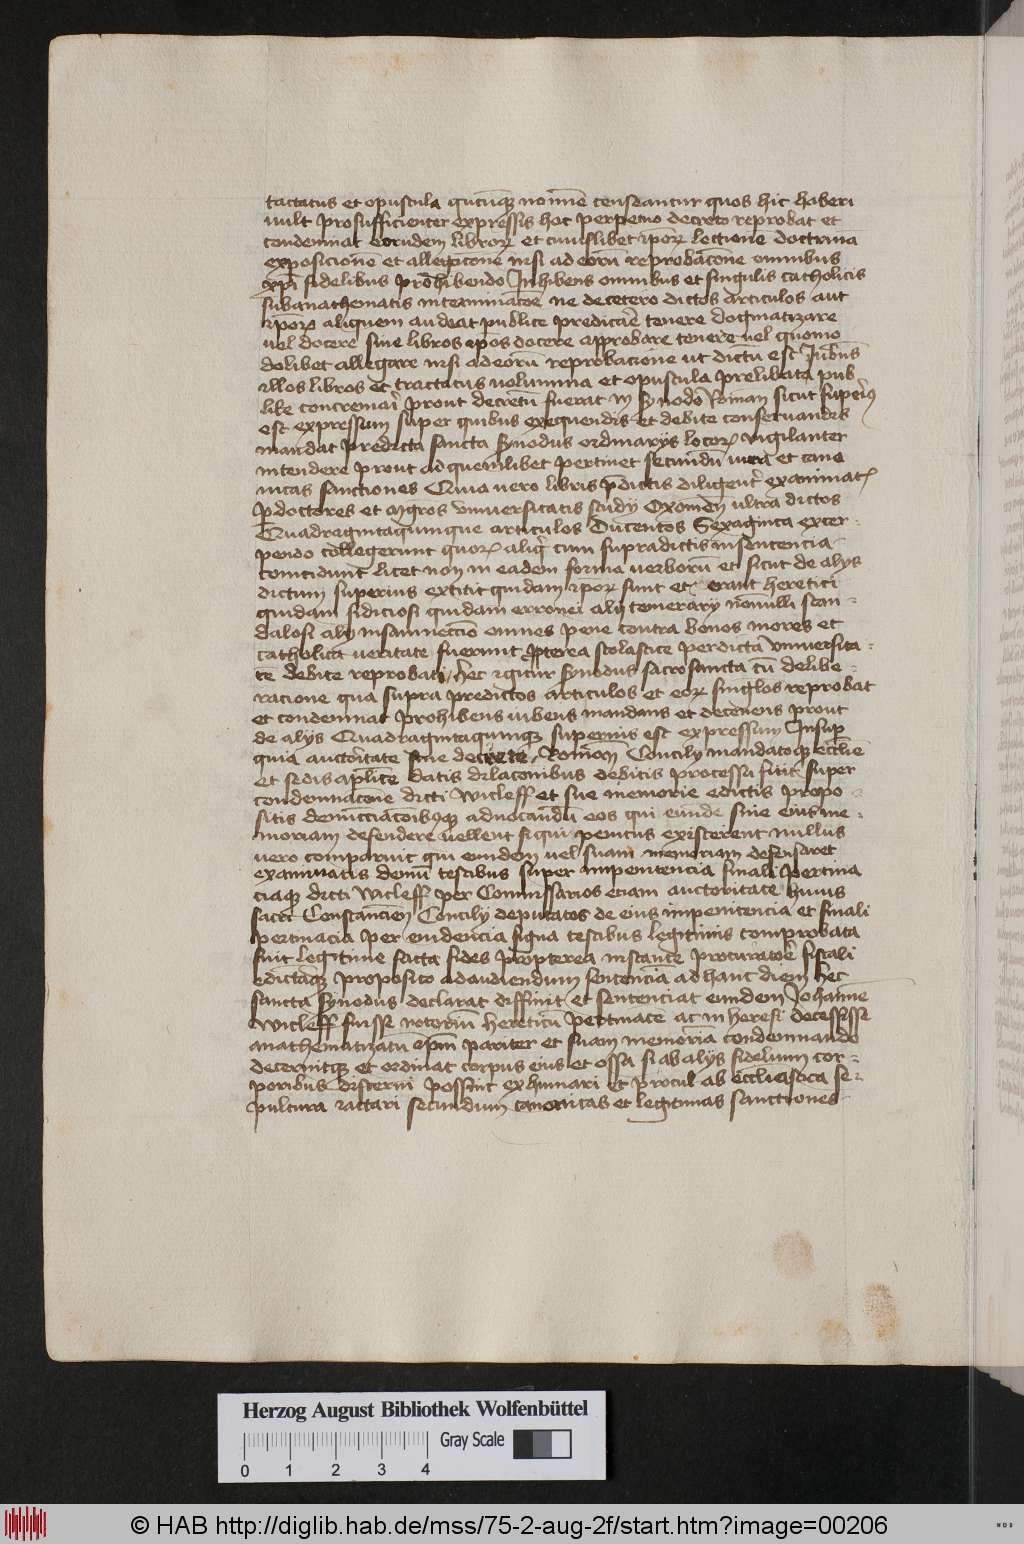 tactatus et opuscula qucūqꝫ nomīe censeantur quos hic haberi
uult pro sufficienter expressis hoc perpetuo decreto reprobat et
condemnat eorundem librorꝝ et cuiuslibet ip̄orꝝ lectionē doctrinā
exposicionē et allegacionē nisi ad eorū reprobacōne omnibus
xp̄i fidelibus prohibendo Inhibens omnibus et singulis catholicis
sub anathematis interminacōe ne decetero dictos articulos aut
ip̄orꝝ aliquem audeat publice predicare tenere dogmatizare
uel docere siue libros ip̄os docere approbare tenere uel quomo
dolibet allegare nisi ad eorū reprobacione ut dictū est Iubens
illos libros et tractatus uolumina et opuscula prelibata pub
lice concremari prout decretū fuerat in synodo Roman sicut superius
est expressum super quibus exequendis et debite conseruandis
mandat predicta sancta synodus ordinarijs locorꝝ vigilanter
intendere prout ad quemlibet pertinet secundū iura et cano
nicas sanctiones Quia uero libris p̄dictis diligenter examinatꝭ
p doctores et mgros vniuersitatis studij Oxonien ultra dictos
Quadragintaquinque articulos Ducentos Sexaginta excer-
pendo collegerunt quorꝝ aliqi cum supradictis in sentencia
coincidunt licet non in eadem forma uerborū et sicut de alijs
dictum superius extitit quidam ip̄orꝝ sunt et erant heretici
quidam sediciosi quidam erronei alij temerarij nōnulli scan-
dalosi alij insani necnō omnes pene contra bonos mores et
catholicā ueritatē fuerunt propterea scolastice per dictā vniuersita-
tē debite reprobati hec igitur synodus sacrosancta cū delibe-
racione qua supra predictos articulos et eorꝝ singlos reprobat
et condemnat prohibens iubens mandans et decernens prout
de alijs Quadragintaquinqꝫ superius est expressum Insup
quia auctoritate siue decreto Romān Concilij mandatoqꝫ ecclīe
et sedis aplīce datis dilacionibus debitis processū fuit super
condemnacōne dicti Wicleff et sue memorie edictis propo-
sitis denuncciacōibusqꝫ ad uocandū eos qui eunde siue eius me-
moriam defendere uellent siqui penitus existerent nullus
uero comparuit qui eundem uel suam memoriam defensaret
examinatis demū testibus super inpenitencia finali pertina
ciaqꝫ dicti Wicleff per Commissarios eciam auctoritate huius
sacri Constancien Concilij deputatos de eius inpenitencia et finali
pertinacia per euidencia signa testibus legitimis comprobata
fuit legitime facta fides propterea instante procuratore fiscali
edictaqꝫ proposito ad audiendum sentencia ad hanc diem hec
sancta synodus declarat diffinit et sentenciat eundem Iohannē
Wicleff fuisse notoriū hereticū pertinacē ac in heresi decessisse
anathematizatū ip̄m pariter et suam memoriā condemnando
decernitqꝫ et ordinat corpus eius et ossa si ab alijs fidelium cor-
poribus discerni possint exhumari et procul ab ecclīastica se-
pultura iactari secundum canonicas et legitimas sanctiones
Herzog August Bibliothek Wolfenbüttel
Gray Scale
0 1 2 3 4
© HAB http://diglib.hab.de/mss/75-2-aug-2f/start.htm?image=00206